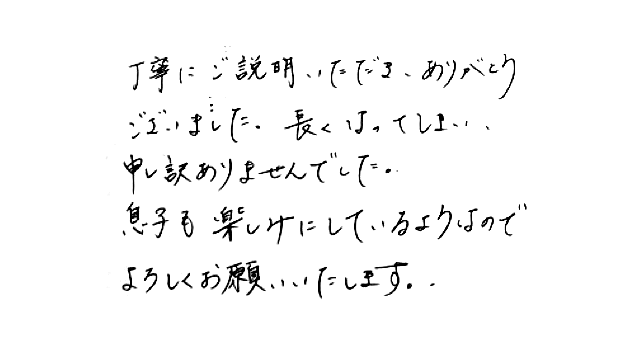 丁寧にご説明いただき、ありがとう
ございました。長くなってしまい、
申し訳ありませんでした。
息子も楽しみにしているようなので
よろしくお願いいたします。